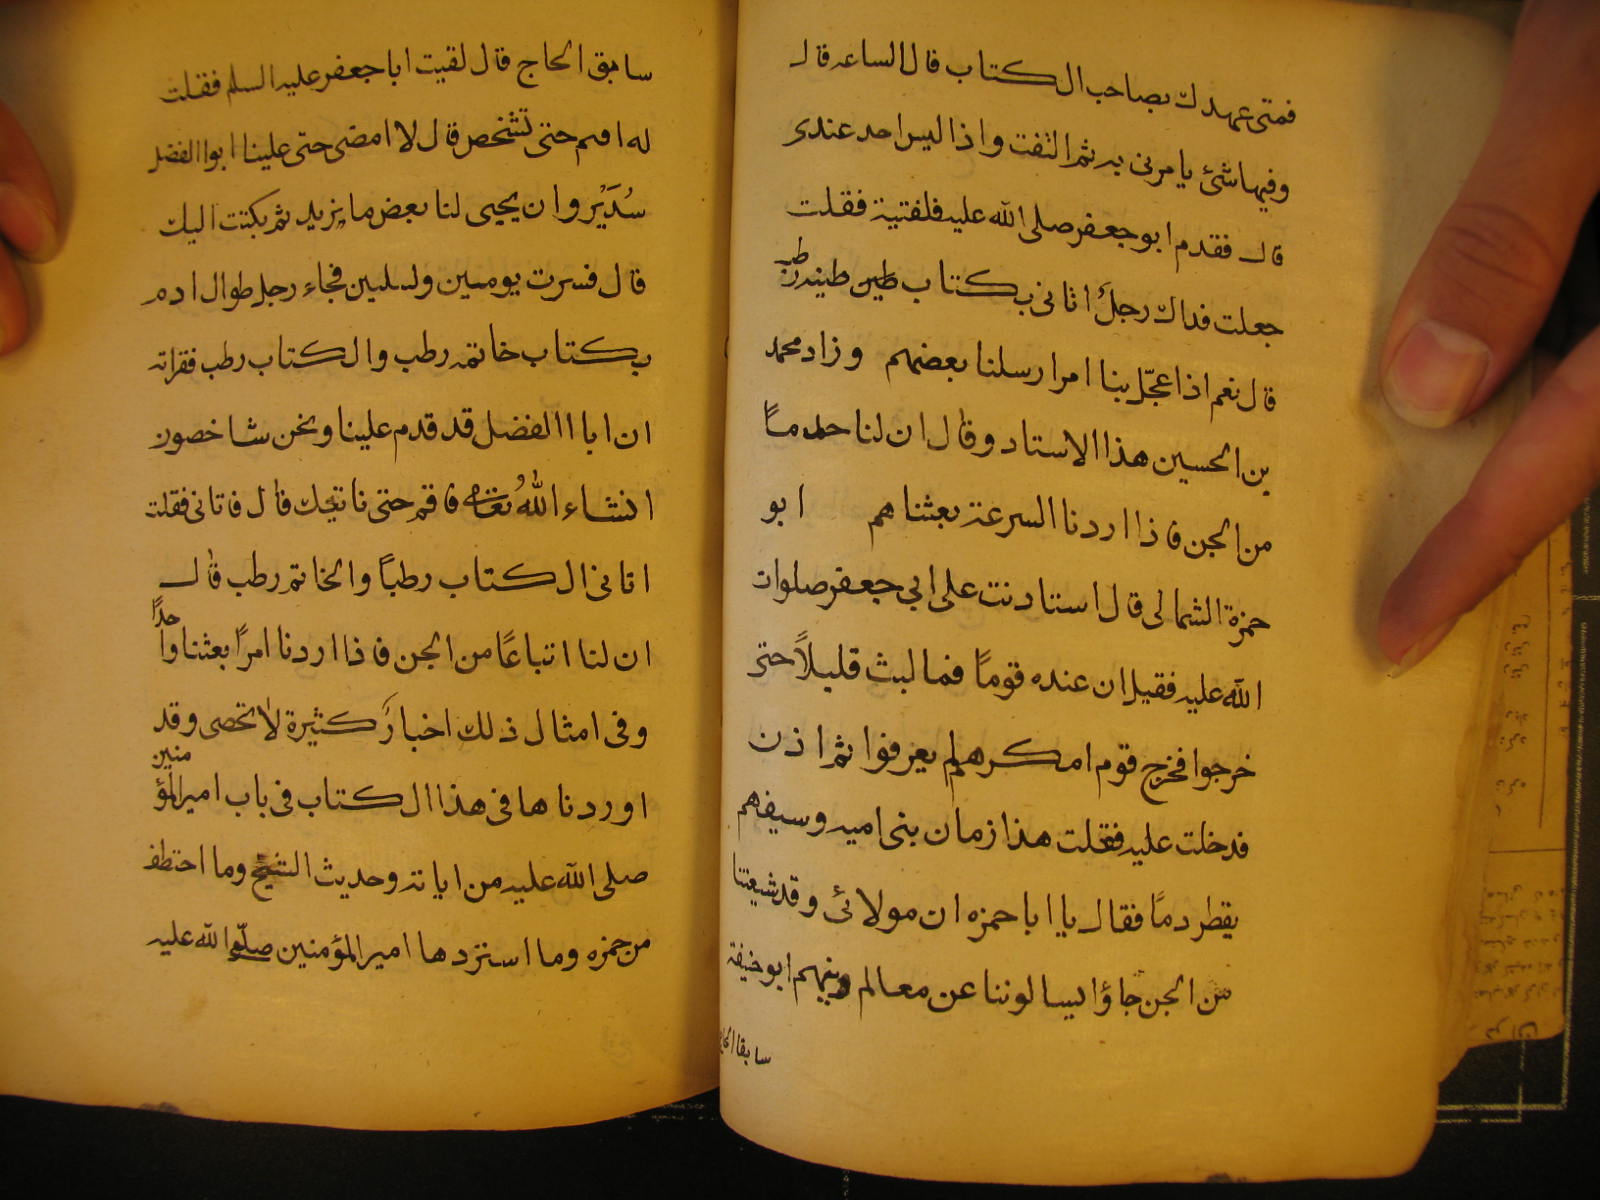 فمتى عهدك بصاحب الكتاب قال الساعه قال
وفيها شئ يامرنى به ثم التفت واذا ليس احد عندى
قال فقدم ابو جعفر صلى الله عليه فلقتيه فقلت
جعلت فداك رجلٌ اتانى بكتاب طين طينه رطب
قال نعم اذا عجّل بنا امر ارسلنا بعضهم وزاد محمد
بن الحسين هذا الاستاد وقال ان لنا خدمًا
من الجن فاذا اردنا السرعة بعثناهم ابو
حمزة الثمالى قال استاذنت على ابي جعفر صلوات
الله عليه فقيل ان عنده قومًا فما لبث قليلاً حتى
خرجوا فخرج قوم امكرهم لم يعرفوا ثم اذن
فدخلت عليه فقلت هذا زمان بنى اميه وسيفهم
يقطر دمًا فقال يا ابا حمزه ان مولائى وقد شيعتنا
من الجن جاؤا يسالوننا عن معالم دينهم ابو حنيفة
سابقا الحاج
سابق الحاج قال لقيت ابا جعفر عليه السلم فقلت
له اقم حتى تشخص قال لا امضى حتى علينا ابو الفضل
سُدَيْر وان يحيى لنا بعض ما يزيد ثم بكتت اليك
قال فسرت يومين وليلتين فجاء رجل طوال ادم
بكتاب خاتمه رطب والكتاب رطب فقراته
ان ابا الفضل قد قدم علينا ونحن شاخصون
انشاء اللهُ تعالى فاقم حتى ناتيك قال فاتانى فقلت
اتانى الكتاب رطبًا والخاتم رطب قال
ان لنا اتباعًا من الجن فاذا اردنا امرًا بعثنا واحدًا
وفى امثال ذلك اخبارَ كثيرة لا تحصى وقد
اوردناها فى هذا الكتاب فى باب امير المؤمنين
صلى الله عليه من اياته وحديث الشيخ وما احتطف
من حمزه وما استزدها امير المؤمنين صلّى الله عليه